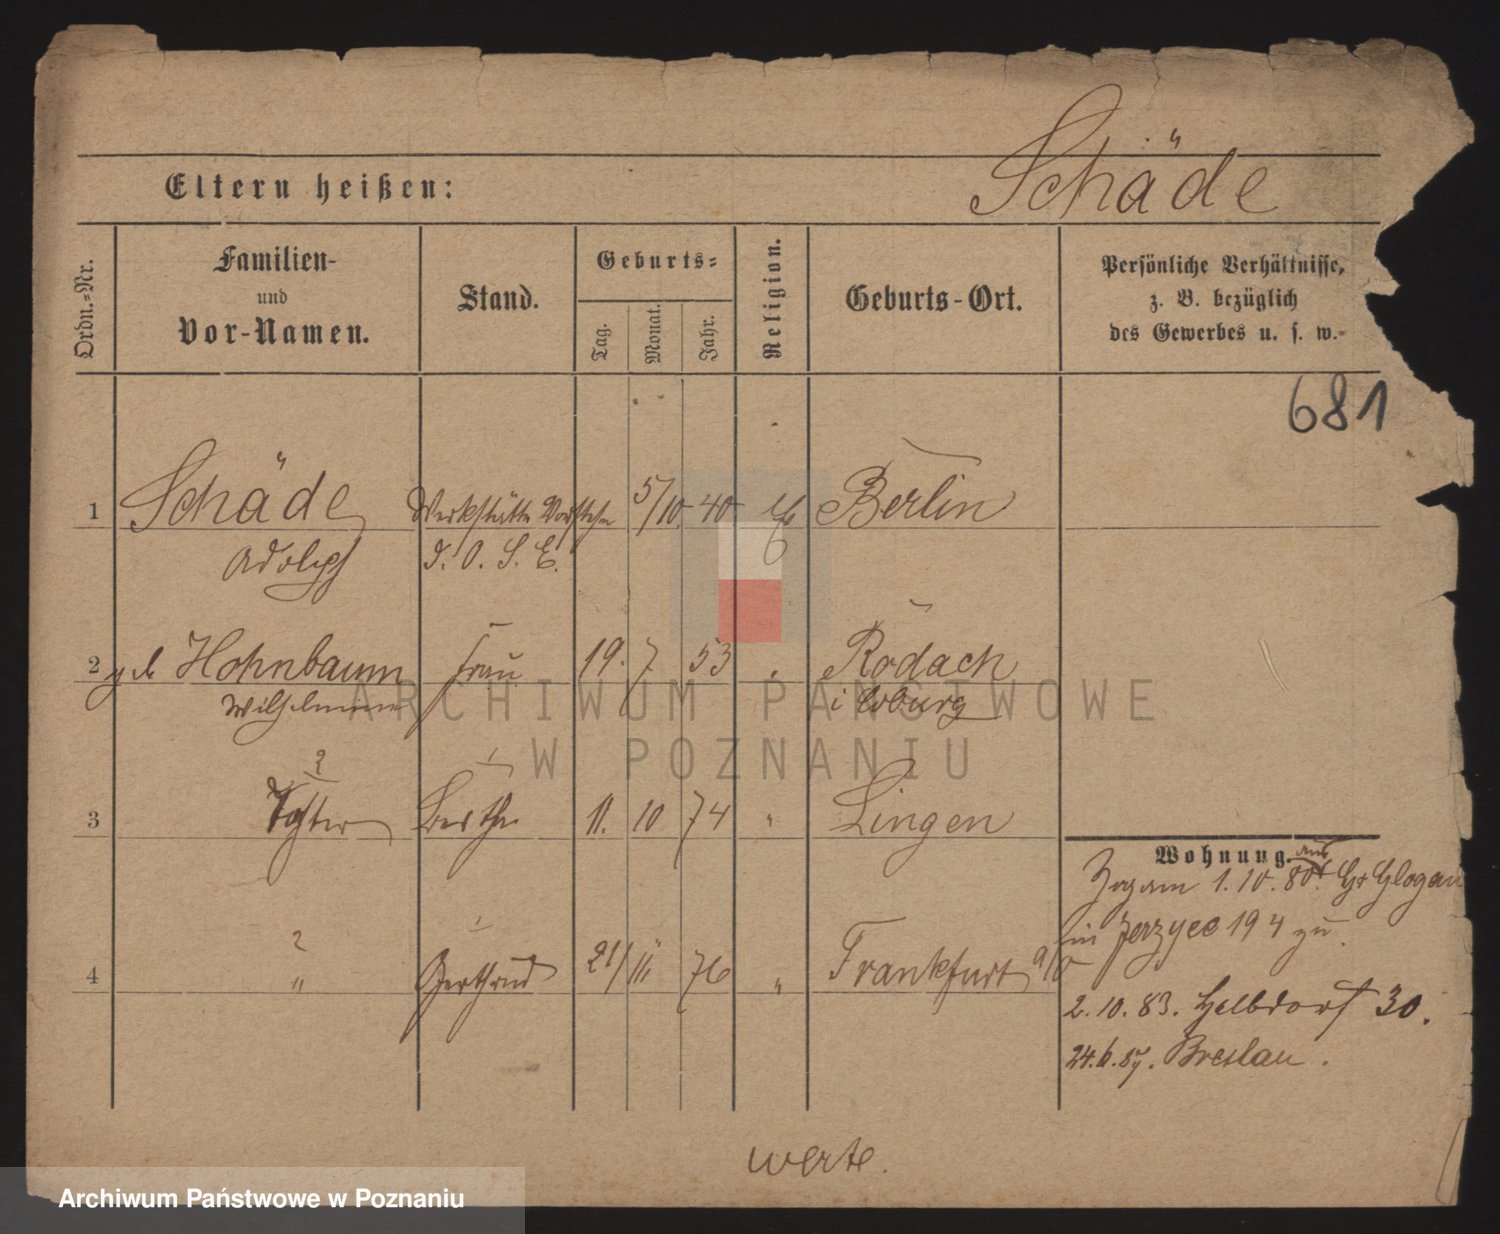 Schäde
Eltern heißen:
Ordn.-Nr.
Familien-
und
Vor-Namen.
Stand.
Geburts-
Tag.
Monat.
Jahr.
Religion.
Geburts-Ort.
Persönliche Verhältnisse,
z. B. bezüglich
des Gewerbes u. s. w.-
681
1 Schäde Werkstätte Vorsteher 5/10 40 Berlin
Adolph d. O. S. E.
2 geb Hohnbaum Frau 19. 7 53 " Rodach
Wilhelmine i Coburg
ARCHIWUM PAŃSTWOWE
W POZNANIU
3 Tochter Bertha 11. 10 74 " Lingen
Wohnung.
Zog am 1.10.80 aus Gr Glogau
4 " Gertrud 21/11 76 " Frankfurt a/O
in Jerzyce 194 zu.
2.10.83. 30.
24.6.87. Breslau.
verte.
Archiwum Państwowe w Poznaniu